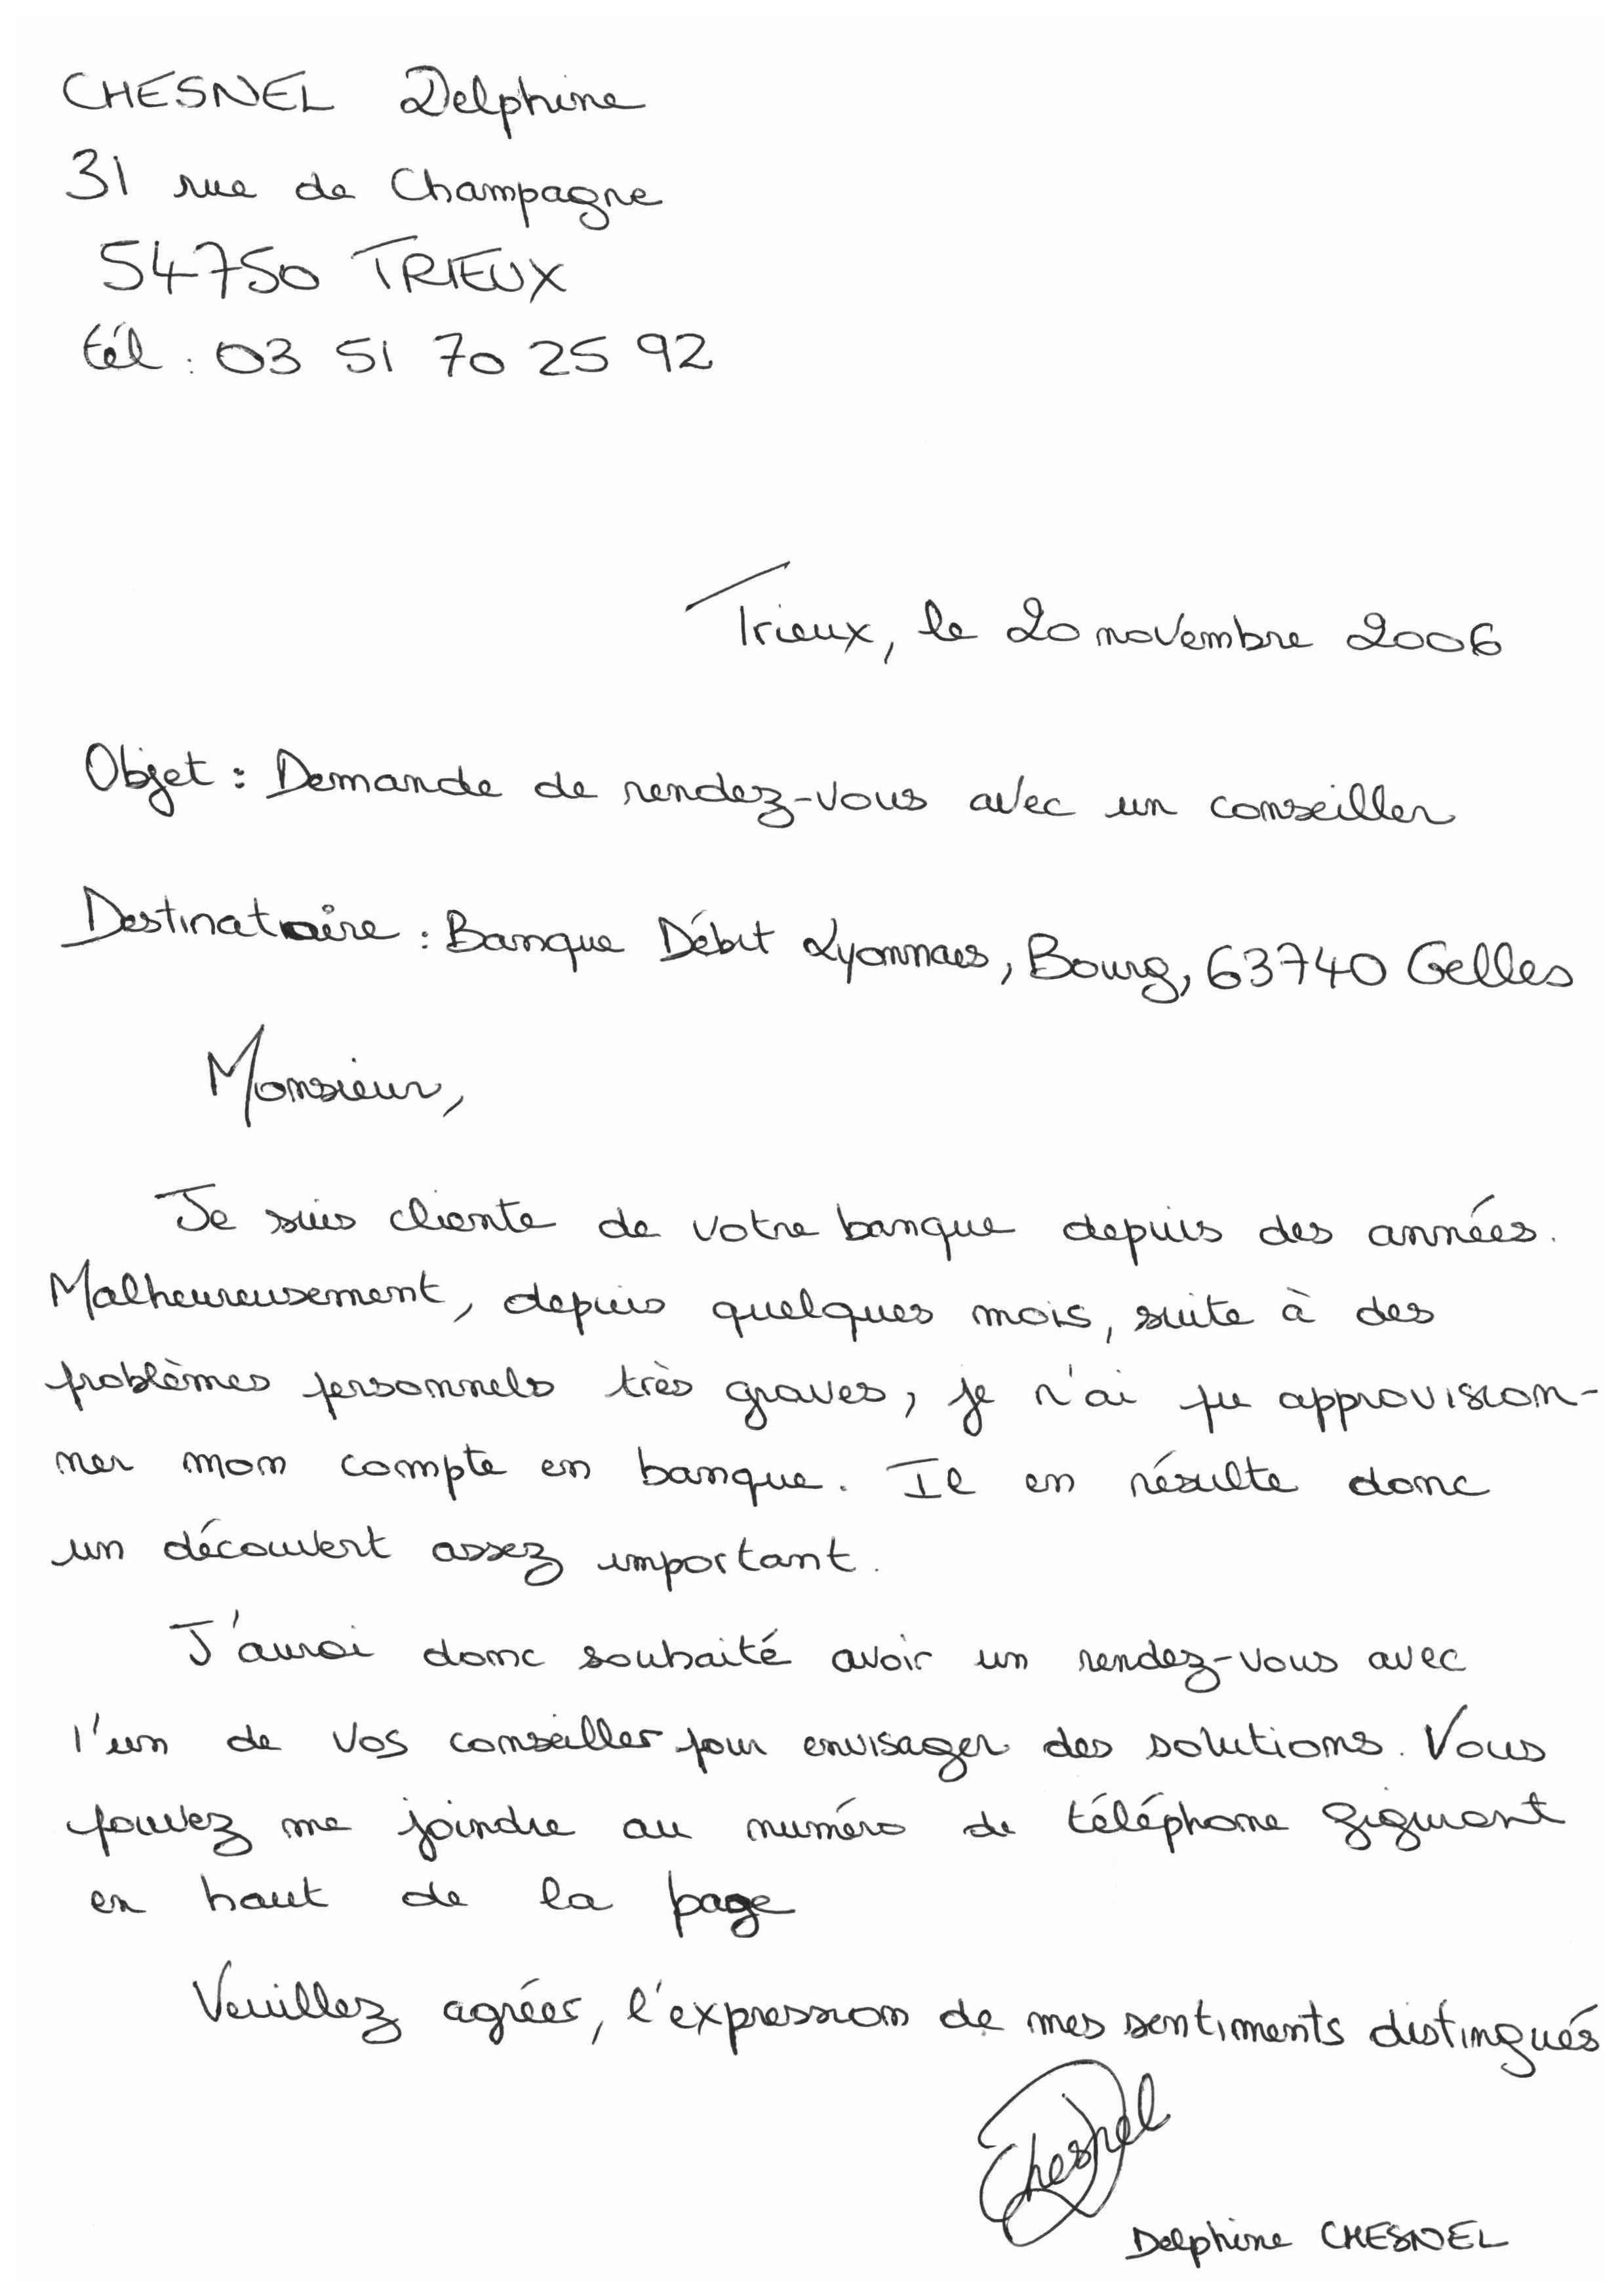 CHESNEL Delphine
31 rue de Champagne
54750 TRIEUX
tél : 03 51 70 25 92
Trieux, le 20 novembre 2006
Objet : Demande de rendez-vous avec un conseiller
Destinataire : Banque Débit Lyonnais, Bourg, 63740 Gelles
Monsieur,
Je suis cliente de votre banque depuis des années.
Malheureusement, depuis quelques mois, suite à des
problèmes personnels très graves, je n'ai pu approvision-
ner mon compte en banque. Il en résulte donc
un découvert assez important.
J'aurai donc souhaité avoir un rendez-vous avec
l'un de vos conseiller pour envisager des solutions. Vous
pouvez me joindre au numéro de téléphone figurant
en haut de la page
Veuillez agréer, l'expression de mes sentiments distingués
Chesnel
Delphine CHESNEL